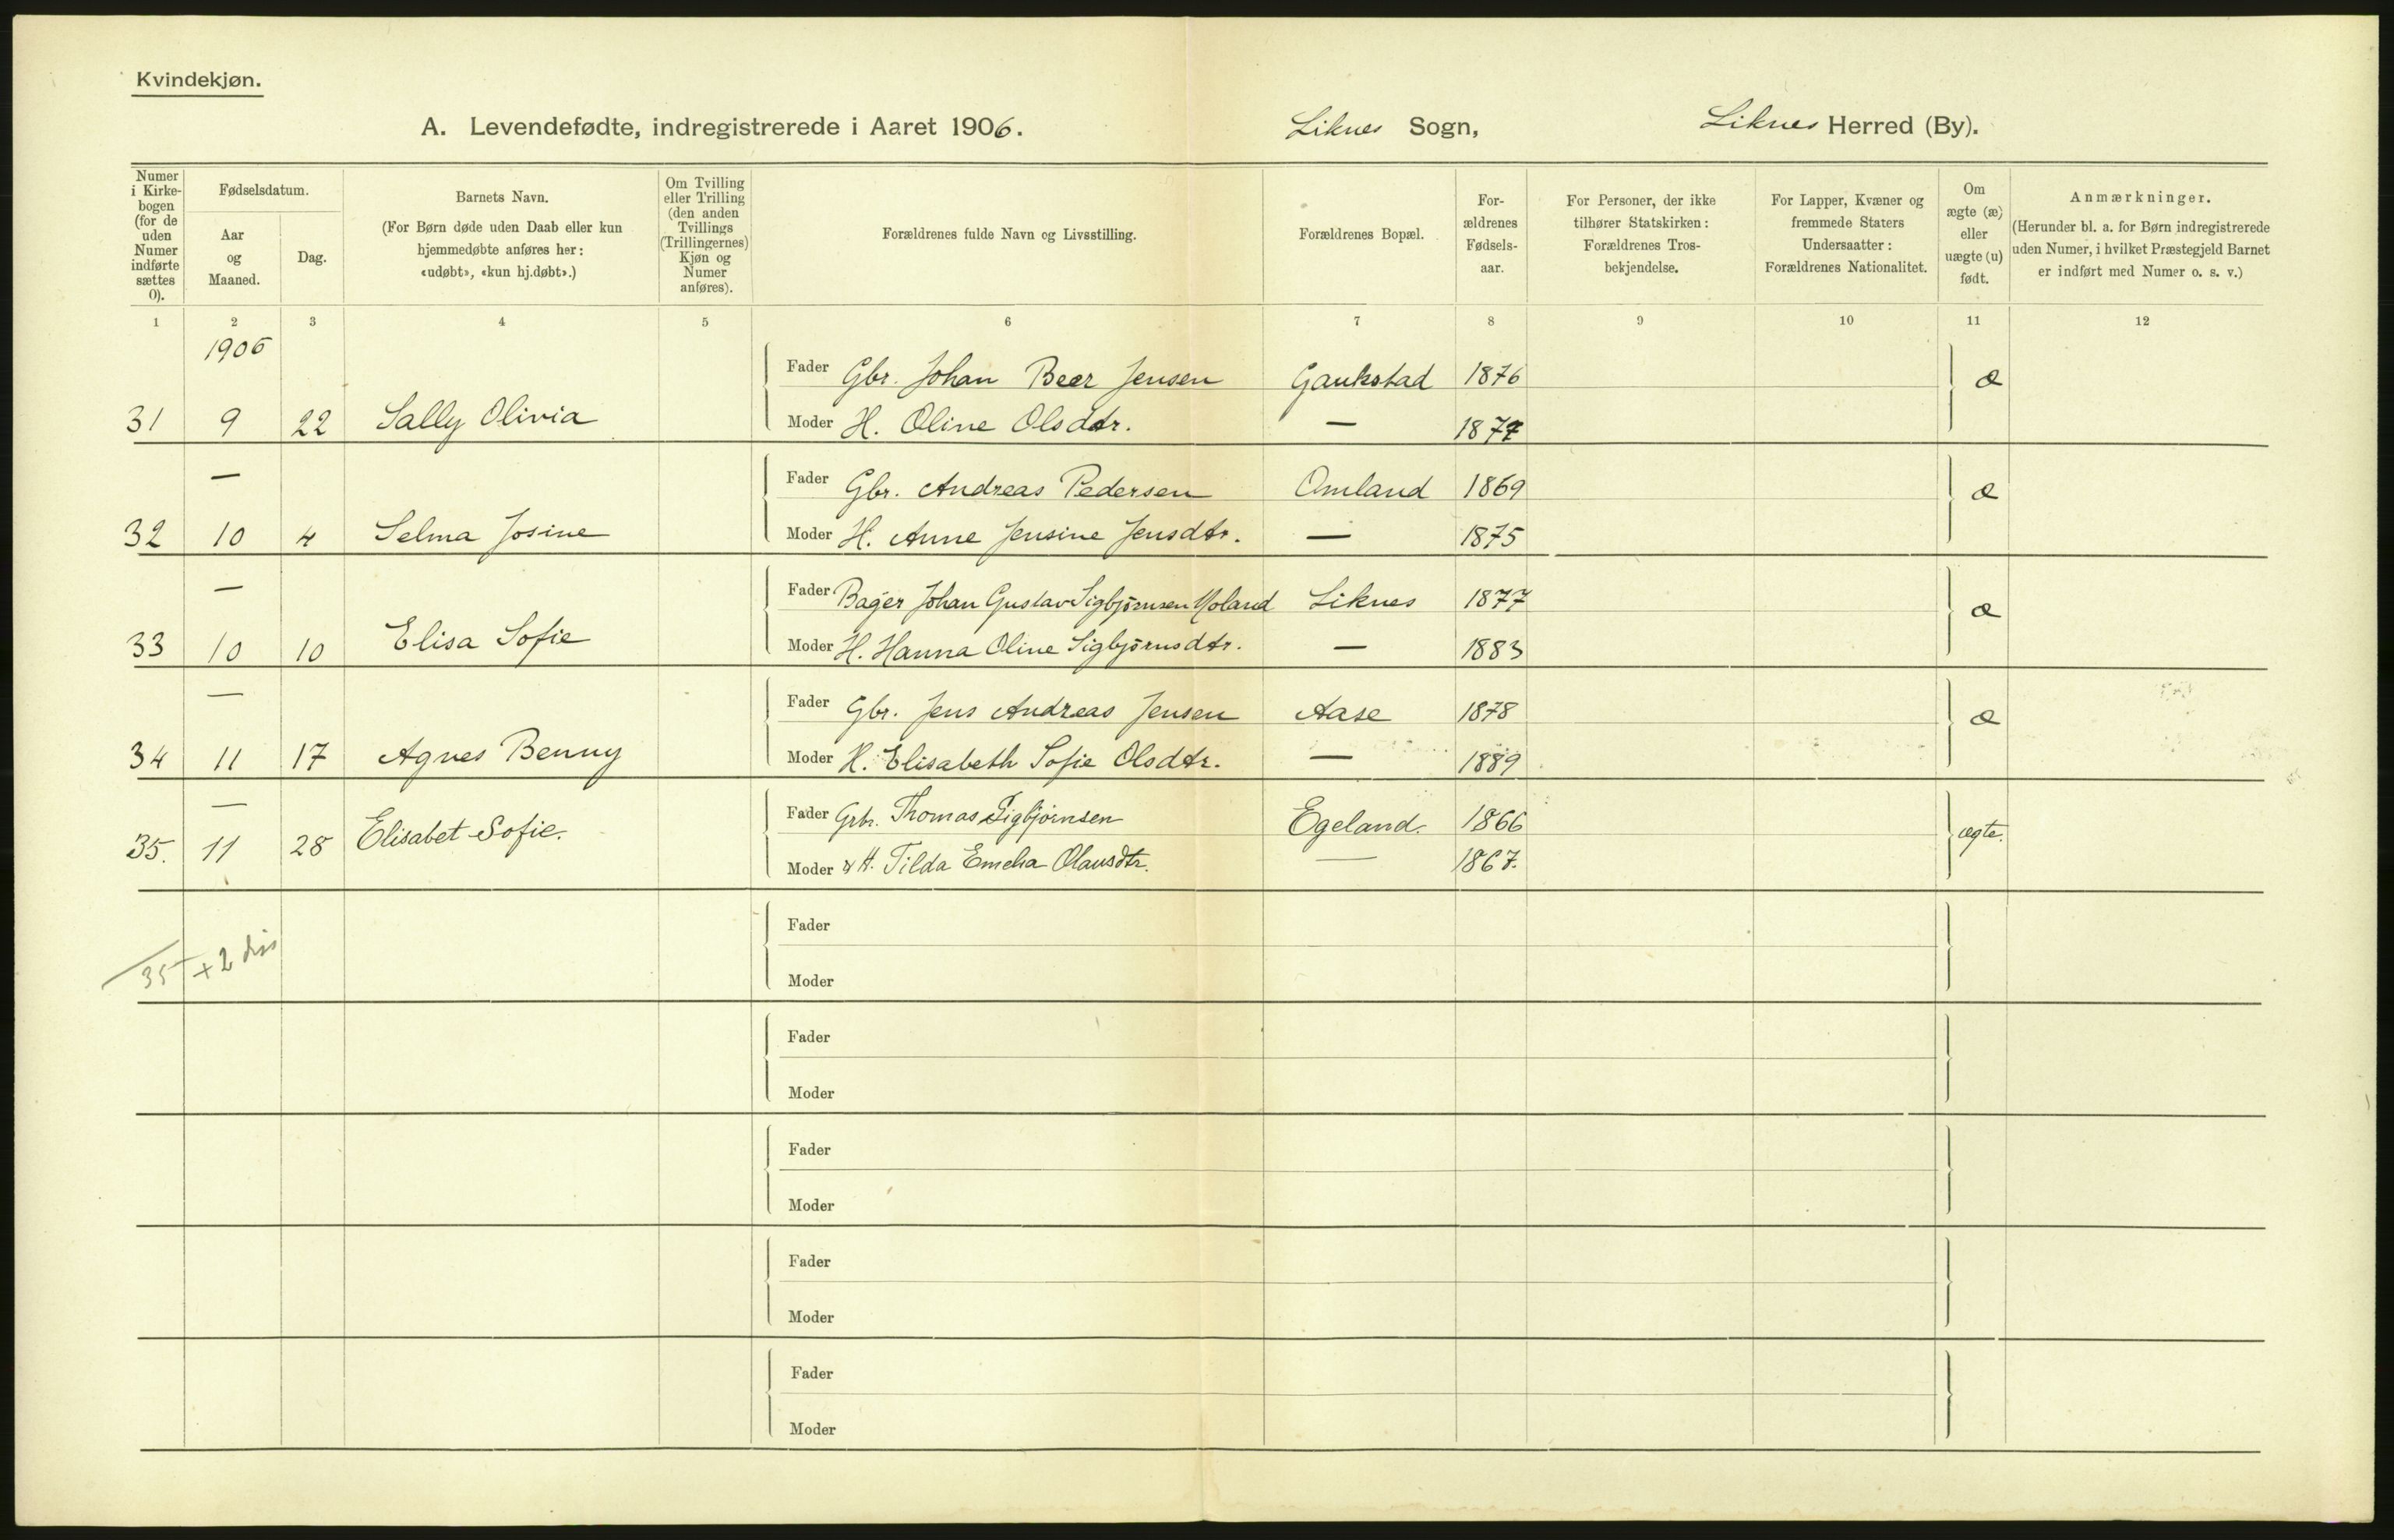 Kvindekjøn.
A. Levendefødte, indregistrerede i Aaret 1906. Liknes Sogn, Liknes Herred (By).
Numer i Kirkebogen (for de uden Numer indførte sættes 0).
Fødselsdatum.
Aar og Maaned.
Dag.
Barnets Navn.
(For Børn døde uden Daab eller kun hjemmedøbte anføres her: «udøbt», «kun hj.døbt».)
Om Tvilling eller Trilling (den anden Tvillings (Trillingernes) Kjøn og Numer anføres).
Forældrenes fulde Navn og Livsstilling.
Forældrenes Bopæl.
Forældrenes Fødselsaar.
For Personer, der ikke tilhører Statskirken: Forældrenes Trosbekjendelse.
For Lapper, Kvæner og fremmede Staters Undersaatter: Forældrenes Nationalitet.
Om ægte (æ) eller uægte (u) født.
Anmærkninger.
(Herunder bl. a. for Børn indregistrerede uden Numer, i hvilket Præstegjeld Barnet er indført med Numer o. s. v.)
1 2 3 4 5 6 7 8 9 10 11 12
1906
Fader Gbr. Johan Beer Jensen Gaukstad 1876 æ
31 9 22 Sally Olivia Moder H. Oline Olsdtr. — 1877
— Fader Gbr. Andreas Pedersen Omland 1869 æ
32 10 4 Selma Josine Moder H. Anne Jensine Jensdtr. — 1875
— Fader Bager Johan Gustav Sigbjörnsen Moland Liknes 1877 æ
33 10 10 Elisa Sofie Moder H. Hanna Oline Sigbjörnsdtr. — 1883
— Fader Gbr. Jens Andreas Jensen Aase 1878 æ
34 11 17 Agnes Benny Moder H. Elisabeth Sofie Olsdtr. — 1889
— Fader Grbr. Thomas Sigbjörnsen Egeland. 1866 ægte.
35. 11 28 Elisabet Sofie. Moder H. Tilda Emelia Olausdtr. — 1867.
Fader
35 + 2 dis
Moder
Fader
Moder
Fader
Moder
Fader
Moder
Fader
Moder